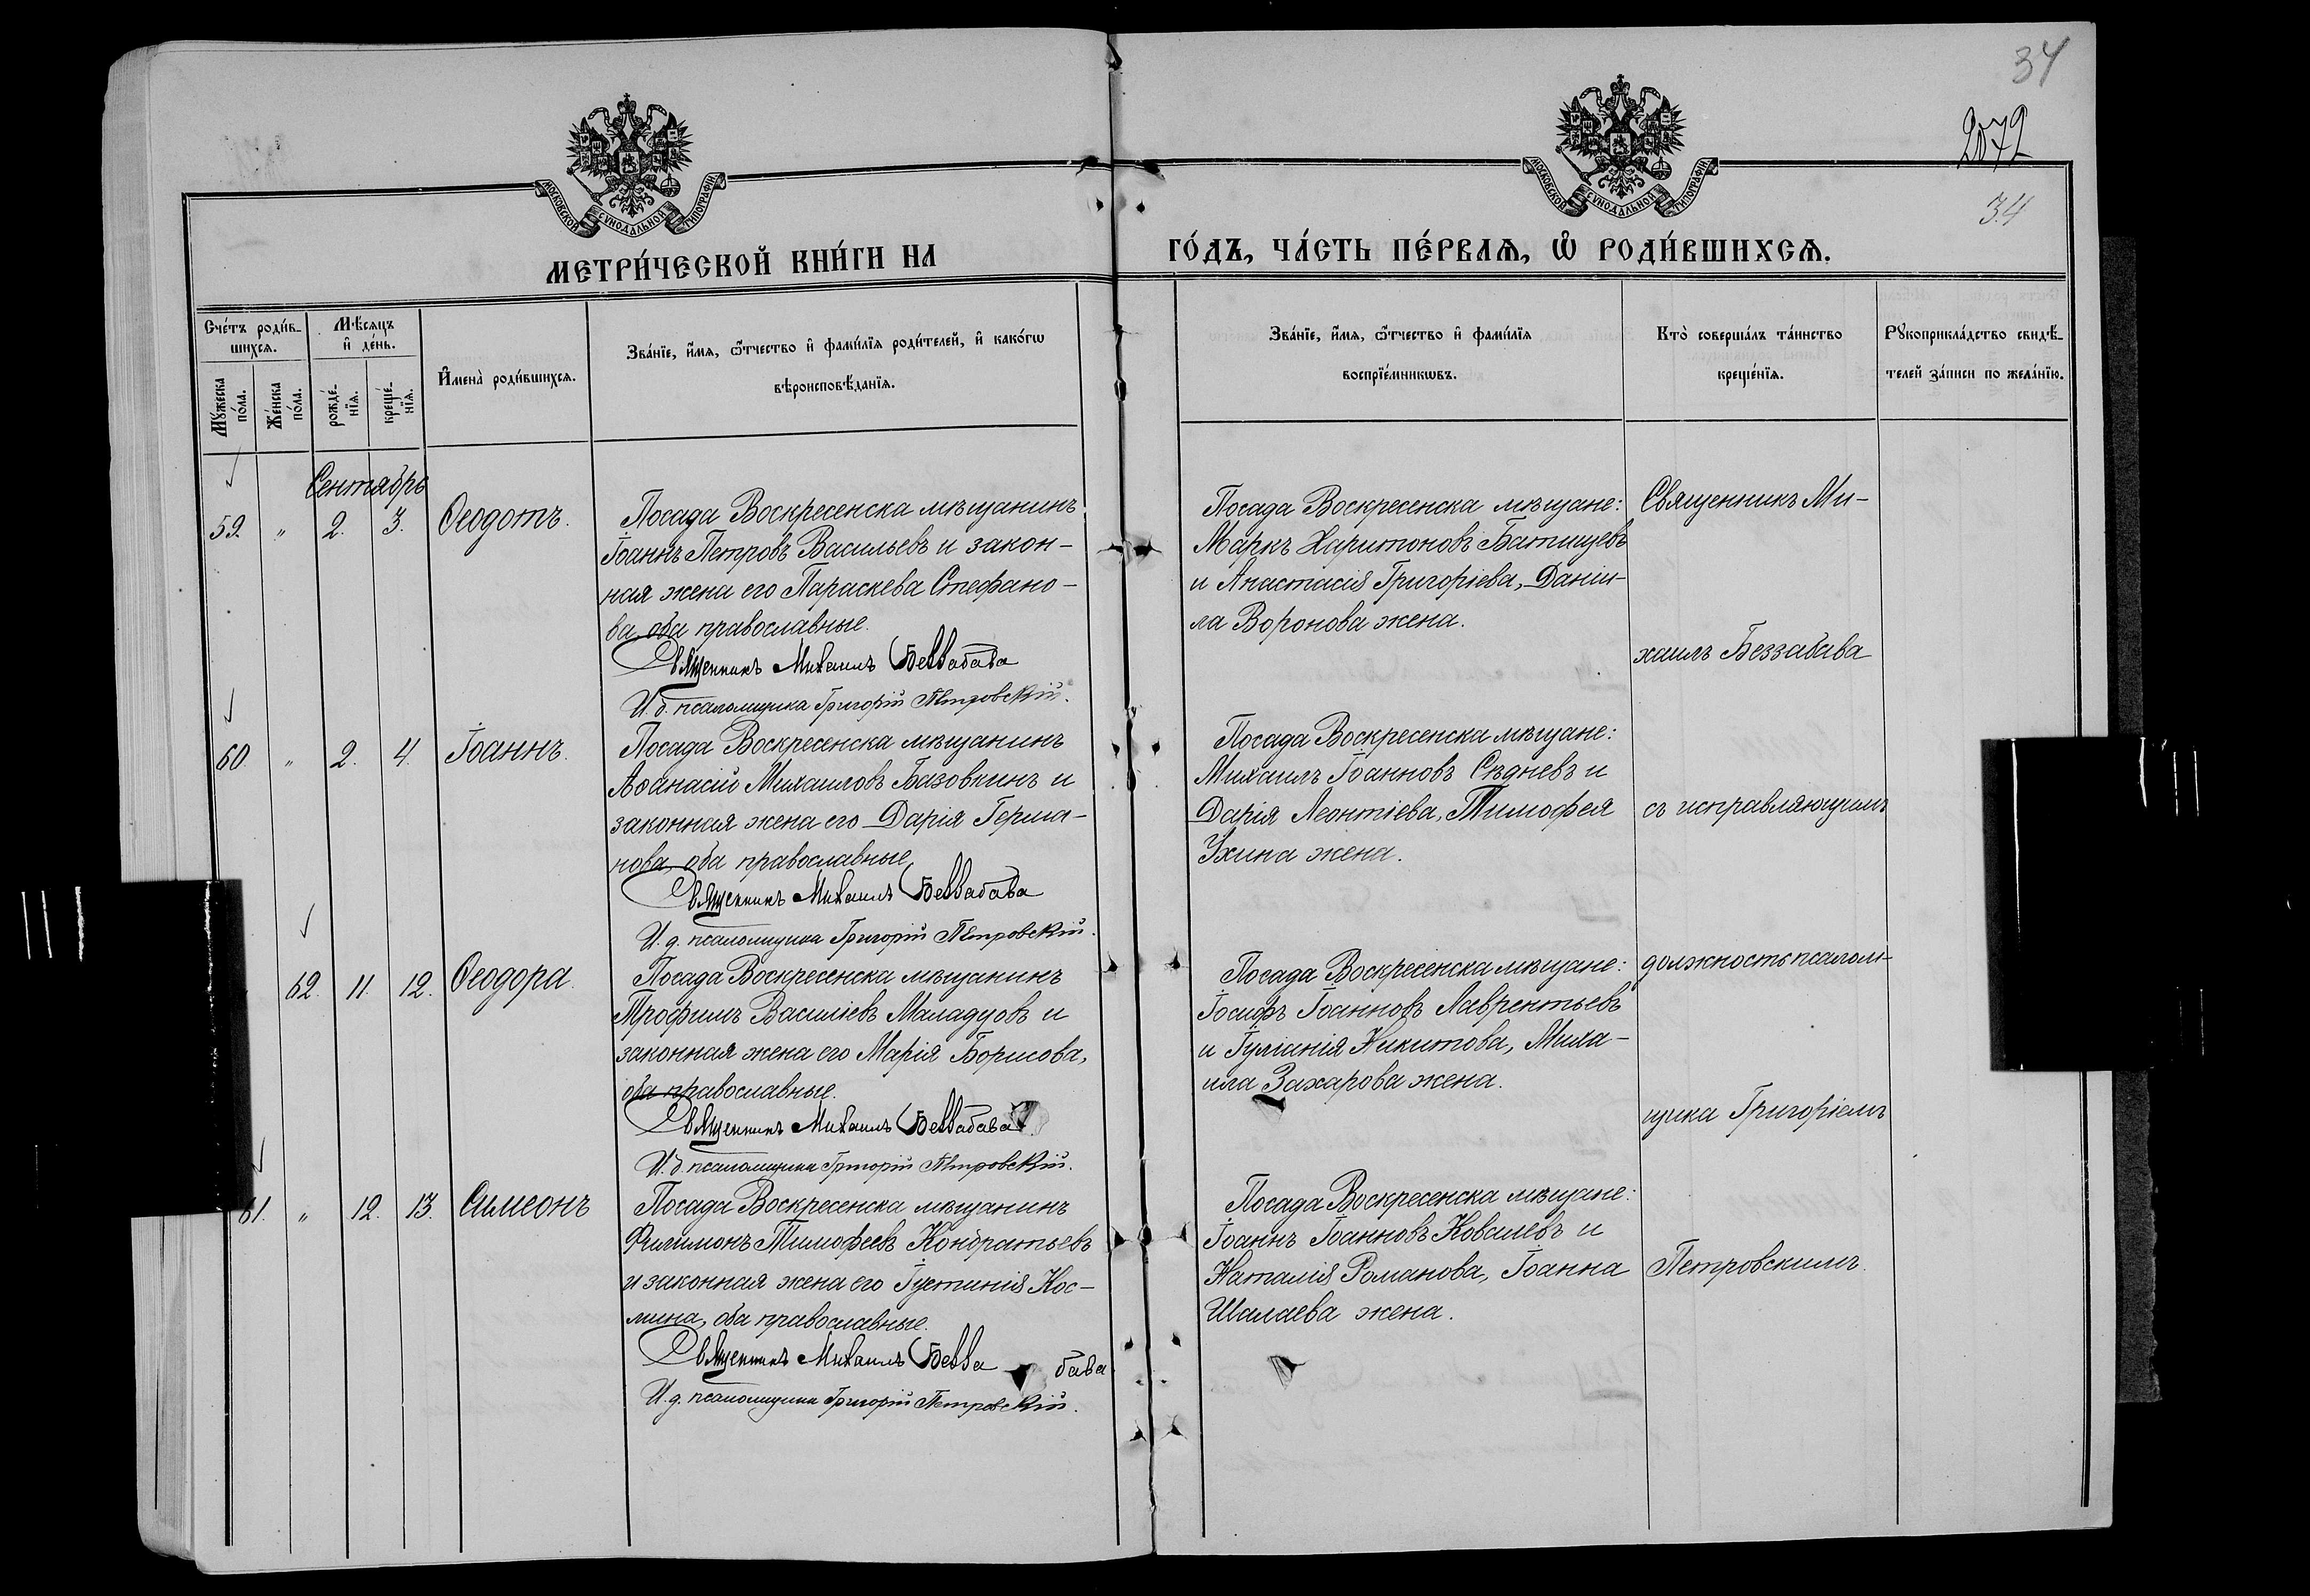 34
2072
34
МОСКОВСКОЙ СѴНОДАЛЬНОЙ ТИПОГРАФІИ
МОСКОВСКОЙ СѴНОДАЛЬНОЙ ТИПОГРАФІИ
МЕТРИ́ЧЕСКОЙ КНИ́ГИ НА
ГО́ДЪ, ЧА́СТЬ ПЕ́РВАѦ, Ѡ҆ РОДИ́ВШИХСѦ.
Сче́тъ роди́в-
шихсѧ.
Мꙋ́жеска
по́ла.
Же́нска
по́ла.
Мѣ́сѧцъ
и҆ де́нь.
рожде́-
нїѧ.
креще́-
нїѧ.
И҆мена̀ роди́вшихсѧ.
Зва́нїе, и҆́мѧ, ѻ҆́тчество и҆ фами́лїѧ роди́телей, и҆ како́гѡ
вѣроисповѣ́данїѧ.
Зва́нїе, и҆́мѧ, ѻ҆́тчество и҆ фами́лїѧ
воспрїе́мникѡвъ.
Кто̀ соверша́лъ та́инство
креще́нїѧ.
Рꙋкоприкла́дство свидѣ́-
телей за́писи по жела́нїю.
Сентябрь
59. " 2. 3. Ѳеодотъ.
Посада Воскресенска мѣщанинъ
Іоаннъ Петровъ Васильевъ и закон-
ная жена его Параскева Стефано-
ва, оба православные.
Священникъ Михаилъ Беззабава
И. д. псаломщика Григорій Петровскій.
Посада Воскресенска мѣщане:
Маркъ Харитоновъ Батищевъ
и Анастасія Григоріева, Даніи-
ла Воронова жена.
Священникъ Ми-
хаилъ Беззабава
60 " 2. 4. Іоаннъ.
Посада Воскресенска мѣщанинъ
Аѳанасій Михаиловъ Базовкинъ и
законная жена его Дарія Герма-
нова, оба православные,
Священникъ Михаилъ Беззабава
И. д. псаломщика Григорій Петровскій.
Посада Воскресенска мѣщане:
Михаилъ Іоанновъ Сѣдневъ и
Дарія Леонтіева, Тимофея
Ухина жена.
съ исправляющимъ
62. 11. 12. Ѳеодора.
Посада Воскресенска мѣщанинъ
Трофимъ Василіевъ Маладцовъ и
законная жена его Марія Борисова,
оба православные.
Священникъ Михаилъ Беззабава
И. д. псаломщика Григорій Петровскій.
Посада Воскресенска мѣщане:
Іосифъ Іоанновъ Лаврентьевъ
и Іуліанія Никитова, Миха-
ила Захарова жена.
должность псалом-
щика Григоріемъ
61. " 12. 13. Симеонъ
Посада Воскресенска мѣщанинъ
Филимонъ Тимофеевъ Кондратьевъ
и законная жена его Іустинія Кос-
мина, оба православные.
Священникъ Михаилъ Безза бава
И. д. псаломщика Григорій Петровскій.
Посада Воскресенска мѣщане:
Іоаннъ Іоанновъ Ковалевъ и
Наталія Романова, Іоанна
Шалаева жена.
Петровскимъ.